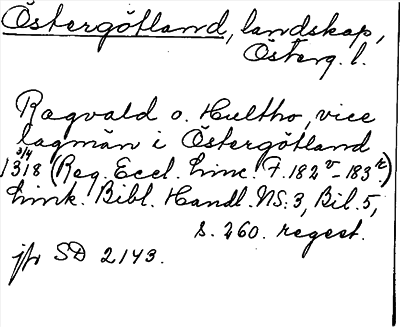 Östergötland, landskap,
Österg. l.
Ragvald o. Hultho, vice
lagmän i Östergötland
1318 3/4 (Reg. Eccl. Linc. F. 182v-183r)
Link. Bibl. Handl. NS: 3, Bil. 5,
s. 260. regest.
jfr SD 2143.